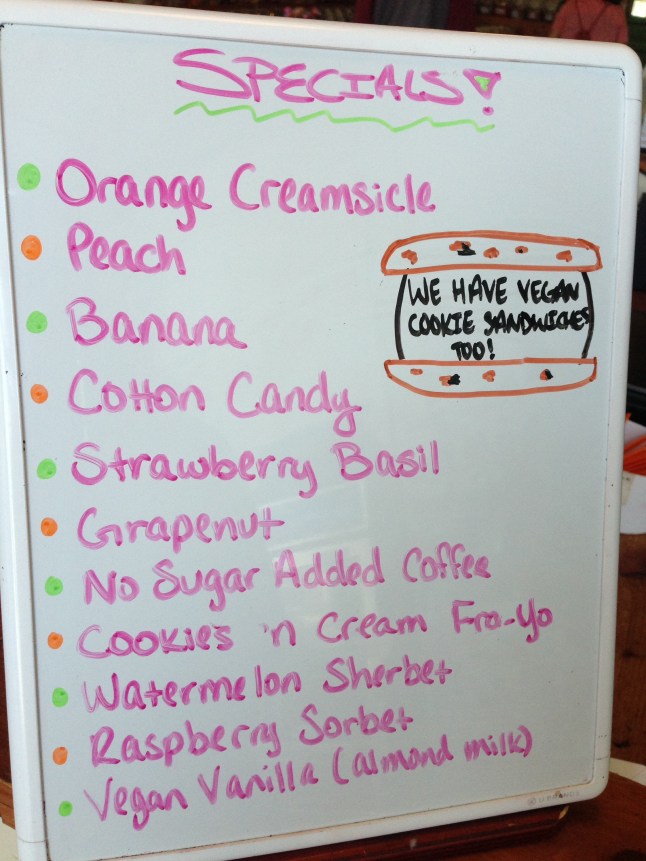 SPECIALS!
Orange Creamsicle
Peach
WE HAVE VEGAN
COOKIE SANDWICHES
TOO!
Banana
Cotton Candy
Strawberry Basil
Grapenut
No Sugar Added Coffee
Cookies 'n Cream Fro-Yo
Watermelon Sherbet
Raspberry Sorbet
Vegan Vanilla (almond milk)